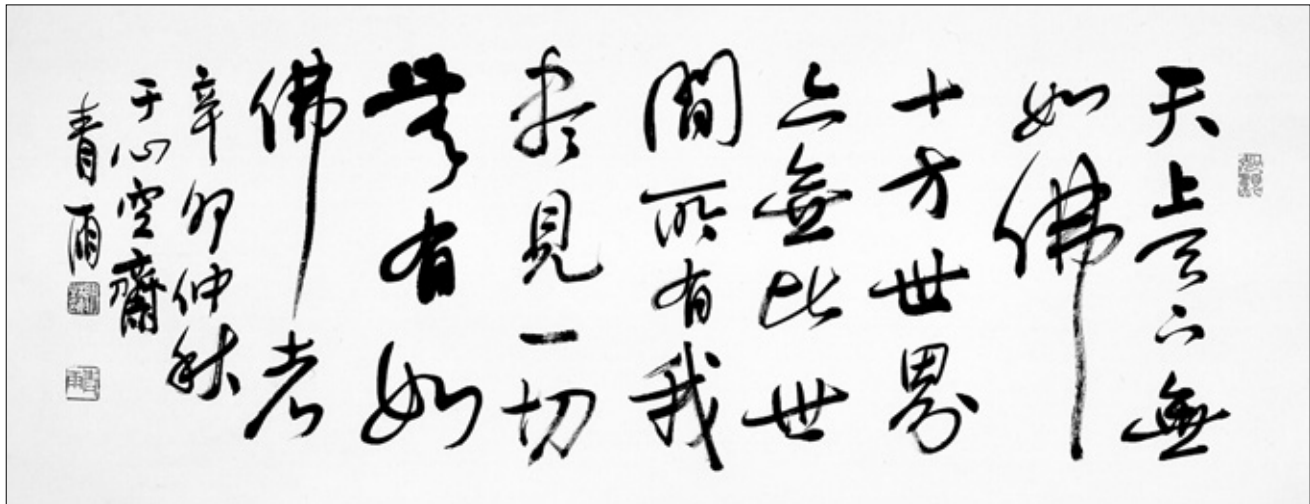 天上天下無
如佛
十方世界
亦無比世
間所有我
盡見一切
無有如
佛者
辛卯仲秋
于心空齋
青雨